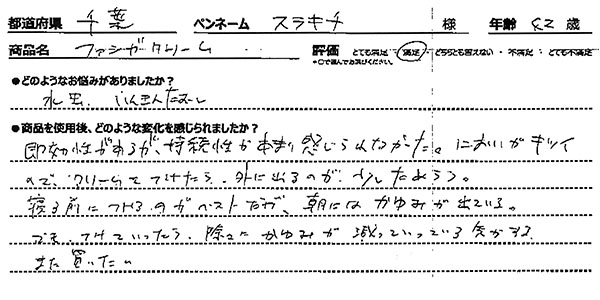 都道府県 千葉 ペンネーム スラキチ 様 年齢 52 歳
商品名 ファンガクリーム 評価 とても満足・満足・どちらとも言えない・不満足・とても不満足
*○で選んでお選びください。
●どのようなお悩みがありましたか?
水虫、いんきんたむし
●商品を使用後、どのような変化を感じられましたか?
即効性があるが、持続性があまり感じられなかった。においがキツイ
ので、クリームをつけたら、外に出るのが、少しためらう。
寝る前につけるのがベストだが、朝にはかゆみが出ている。
でも、つけていったら、除々にかゆみが減っていっている気がする
また買いたい